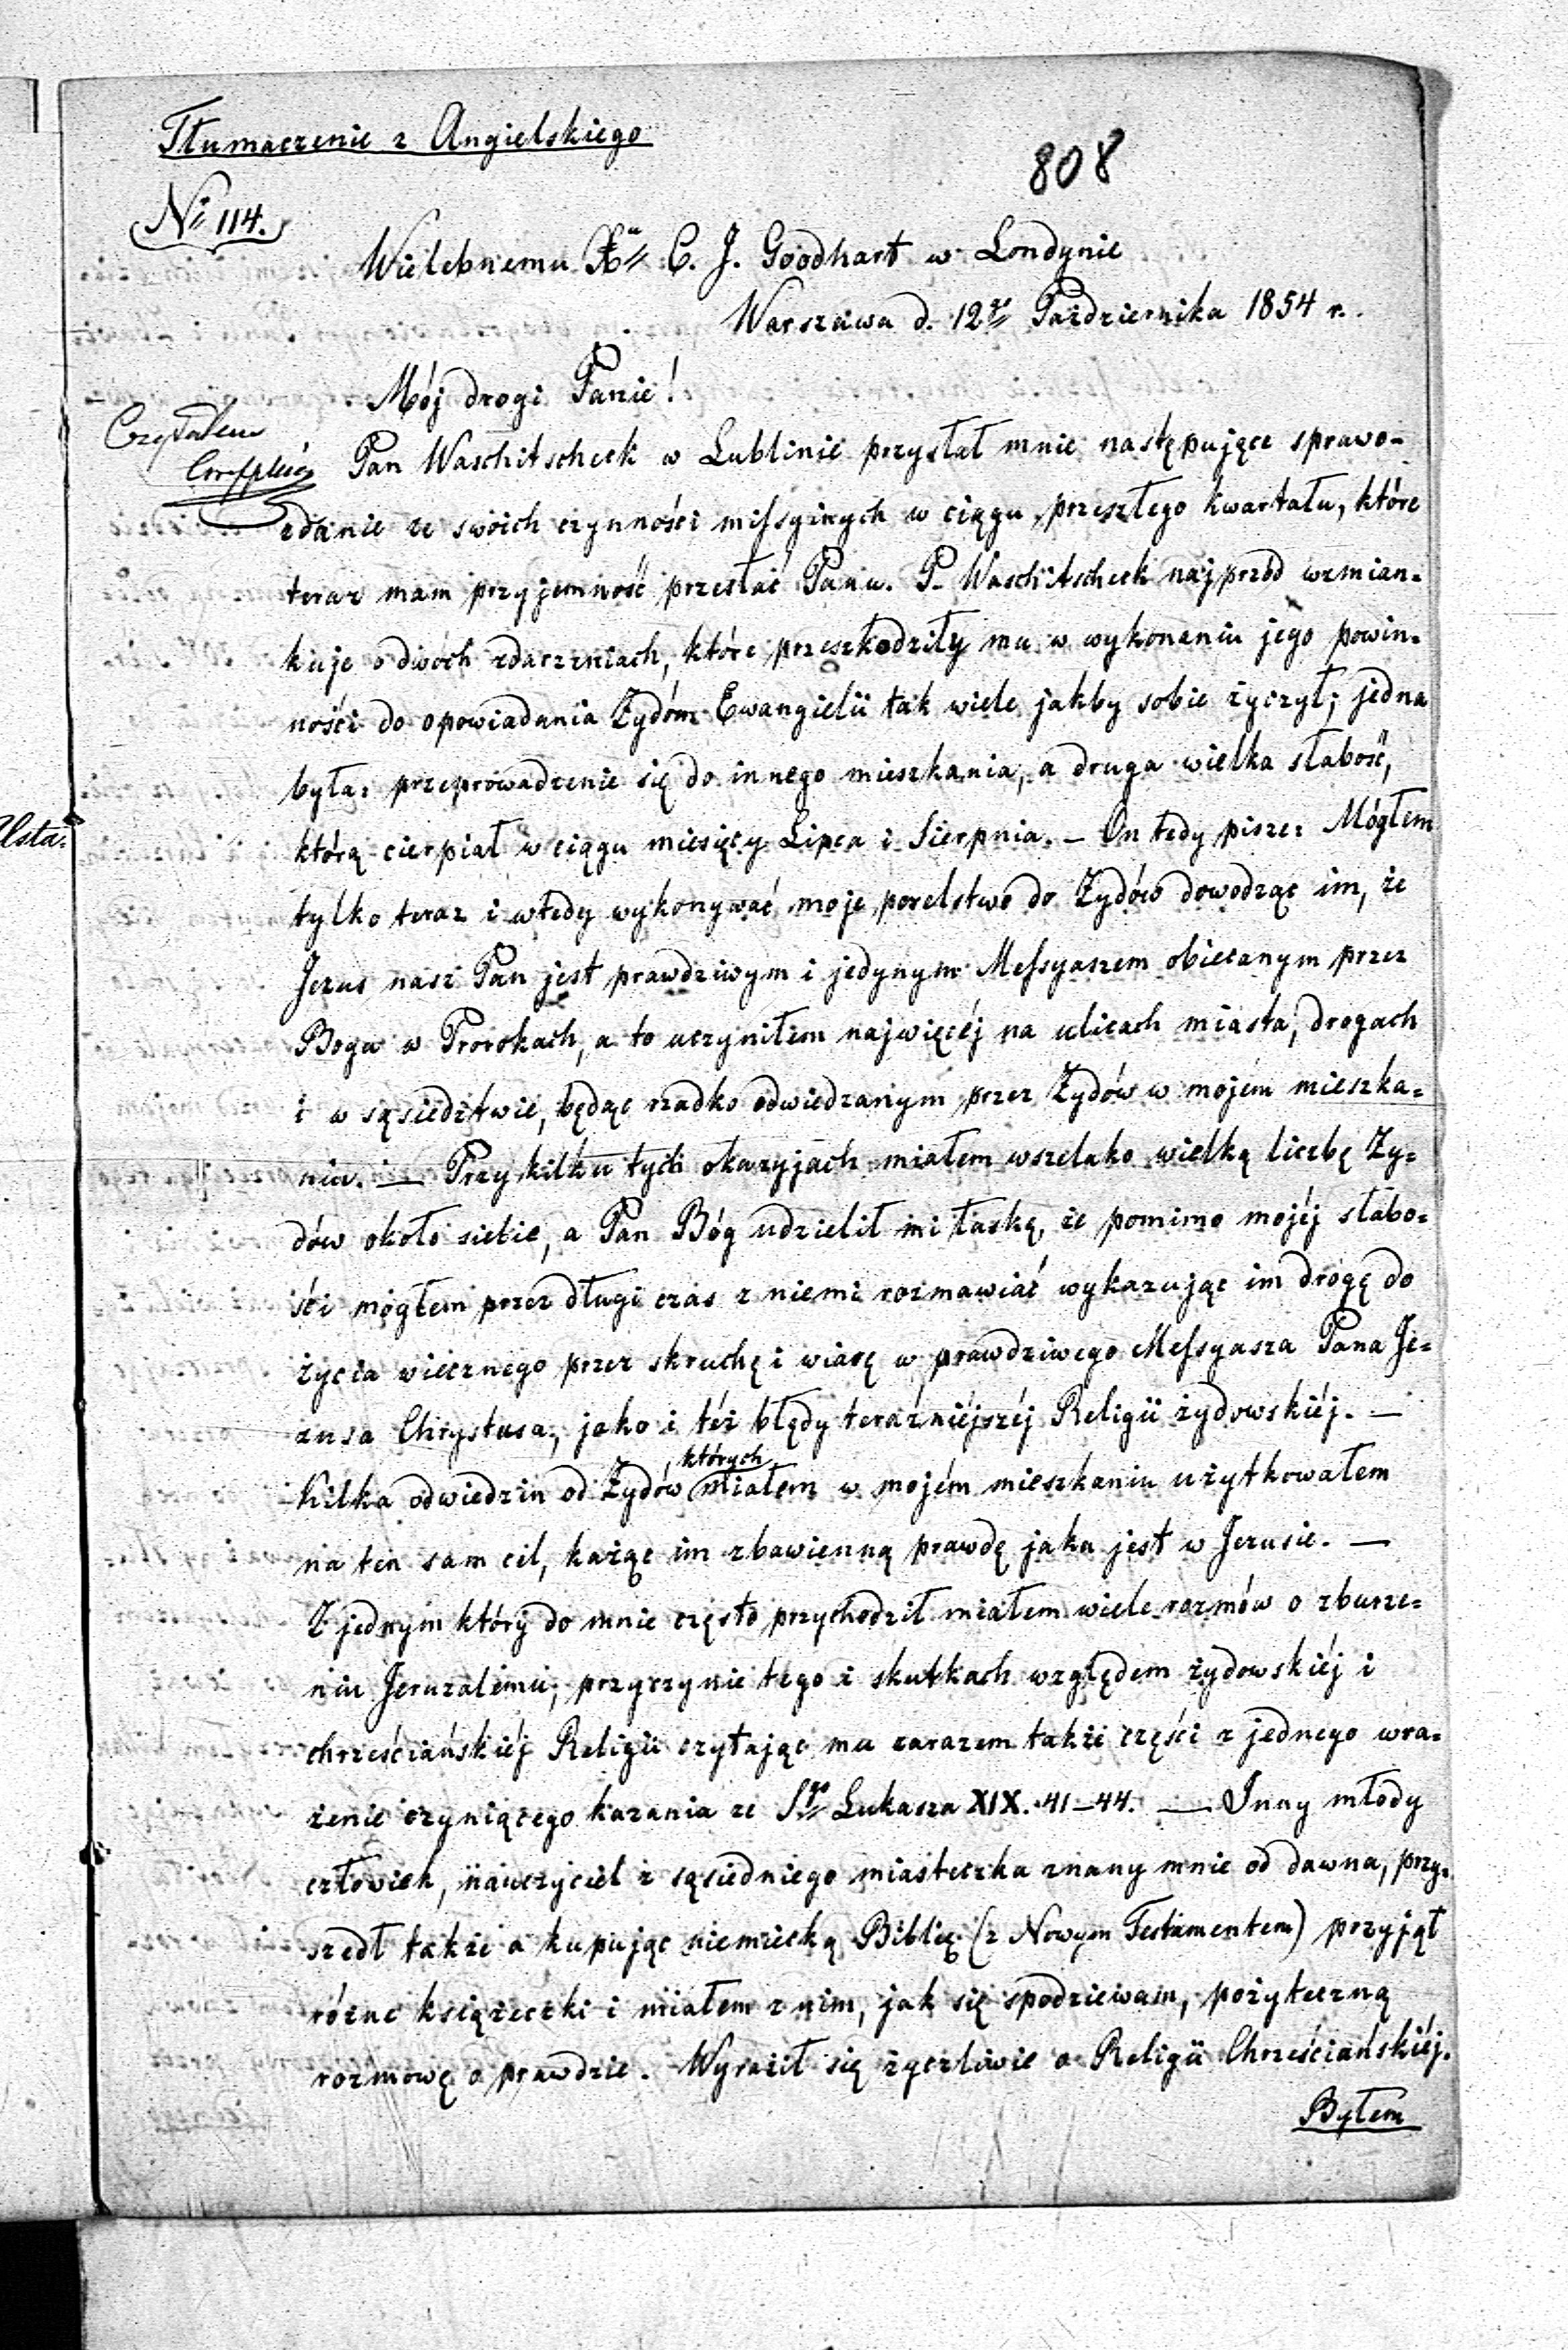 Tłumaczenie z Angielskiego
808
No 114.
Wielebnemu Xu C. J. Goodhart w Londynie
Warszawa d. 12go Października 1854 r.
Mój drogi Panie!
Czytałem
Pan Waschitscheck w Lublinie przysłał mnie następujące sprawo-
zdanie ze swoich czynności missyjnych w ciągu przeszłego kwartału, które
teraz mam przyjemność przesłać Panu. P. Waschitscheck najprzód wzmian-
kuje o dwóch zdarzeniach, które przeszkodziły mu w wykonaniu jego powin-
ności do opowiadania Żydom Ewangielii tak wiele jakby sobie życzył; jedna
była: przeprowadzenie się do innego mieszkania, a druga wielka słabość,
którą cierpiał w ciągu miesięcy Lipca i Sierpnia. – On tedy pisze: Mógłem
tylko teraz i wtedy wykonywać moje poselstwo do Żydów dowodząc im, że
Jezus nasz Pan jest prawdziwym i jedynym Messyaszem obiecanym przez
Boga w Prorokach, a to uczyniłem najwięcéj na ulicach miasta, drogach
i w sąsiedztwie, będąc rzadko odwiedzanym przez Żydów w mojém mieszka-
niu. — Przy kilku tych okazyjach miałem wszelako wielką liczbę Ży-
dów około siebie, a Pan Bóg udzielił mi łaskę, że pomimo mojéj słabo-
ści mógłem przez długi czas z niemi rozmawiać wykazując im drogę do
życia wiecznego przez skruchę i wiarę w prawdziwego Messyasza Pana Je-
zusa Chrystusa, jako i téż błędy teraźniéjszéj Religii żydowskiéj. —
Kilka odwiedzin od Żydów, których miałem w mojém mieszkaniu użytkowałem
na ten sam cel, każąc im zbawienną prawdę jaka jest w Jezusie. —
Z jednym który do mnie często przychodził miałem wiele rozmów o zburze-
niu Jeruzalemu, przyczynie tego i skutkach względem żydowskiéj i
chrześciańskiéj Religii czytając mu zarazem także części z jednego wra-
żenie czyniącego kazania ze Sgo Łukasza XIX. 41–44. — Inny młody
człowiek, nauczyciel z sąsiedniego miasteczka znany mnie od dawna, przy-
szedł także a kupując niemiecką Biblię (z Nowym Testamentem) przyjął
różne książeczki i miałem z nim, jak się spodziewam, pożyteczną
rozmowę o prawdzie. Wyraził się życzliwie o Religii Chrześciańskiéj.
Byłem